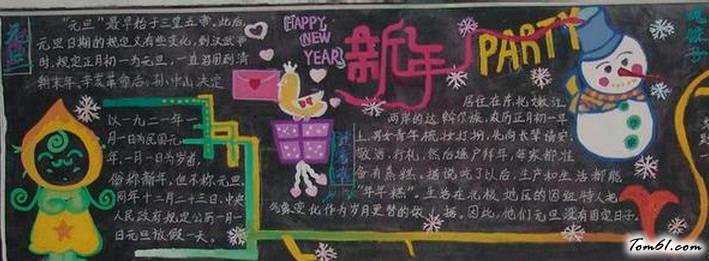 元旦
"元旦"最早始于三皇五帝。此后,
元旦日期的规定又有些变化,到汉武帝
时,规定正月初一为元旦,一直沿用到清
朝末年。辛亥革命后,孙中山决定
以一九二一年一
月一日为民国元
年,一月一日为岁首,
俗称新年,但不称元旦。
同年十二月二十三日,中央
人民政府规定公历一月一
日元旦放假一天。
HAPPY
NEW
YEAR
新年
PARTY
居住在东北嫩江
两岸的达斡尔族,农历正月初一早
上,男女青年梳妆打扮,先向长辈请安、
敬酒、行礼,然后逐户拜年,每家都准
备有蒸糕。据说吃了以后,生产和生活都能
"年年糕"。生活在北极地区的因纽特人把
气象变化作为岁月更替的依据。因此,他们元旦没有固定日子。
Tom61.com